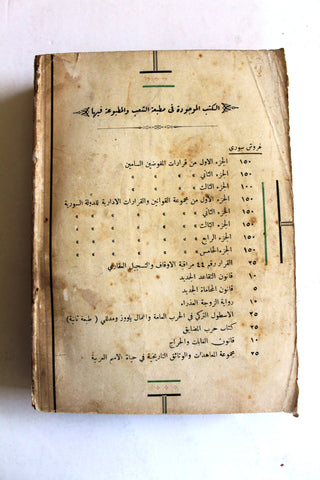 الكتب الموجودة فى مطبعة الشعب والمطبوعة فيها
غروش سوري
١٥٠ الجزء الاول من قرارات المفوضين السامين
١٥٠ الجزء الثاني « « « «
١٥٠ الجزء الثالث « « « «
١٥٠ الجزء الاول من مجموعة القوانين والقرارات الادارية للدولة السورية
١٥٠ الجزء الثاني « « « « « «
١٥٠ الجزء الثالث « « « « « «
١٥٠ الجزء الرابع « « « « « «
١٥٠ الجزء الخامس « « « « « «
٢٥ القرار رقم ٤٤ مراقبة الاوقاف والتسجيل الطارئ
١٠ قانون التقاعد الجديد
٥ قانون المحاماة الجديد
١٠ رواية الزوجة العذراء
٢٥ الاسطول التركي في الحرب العامة واعمال ياووز ومدللي ( طبعة ثانية )
٢٥ كتاب حرب المضايق
١٠ قانون الغابات والحراج
٢٥ مجموعة المعاهدات والوثائق التاريخية في حياة الامم العربية